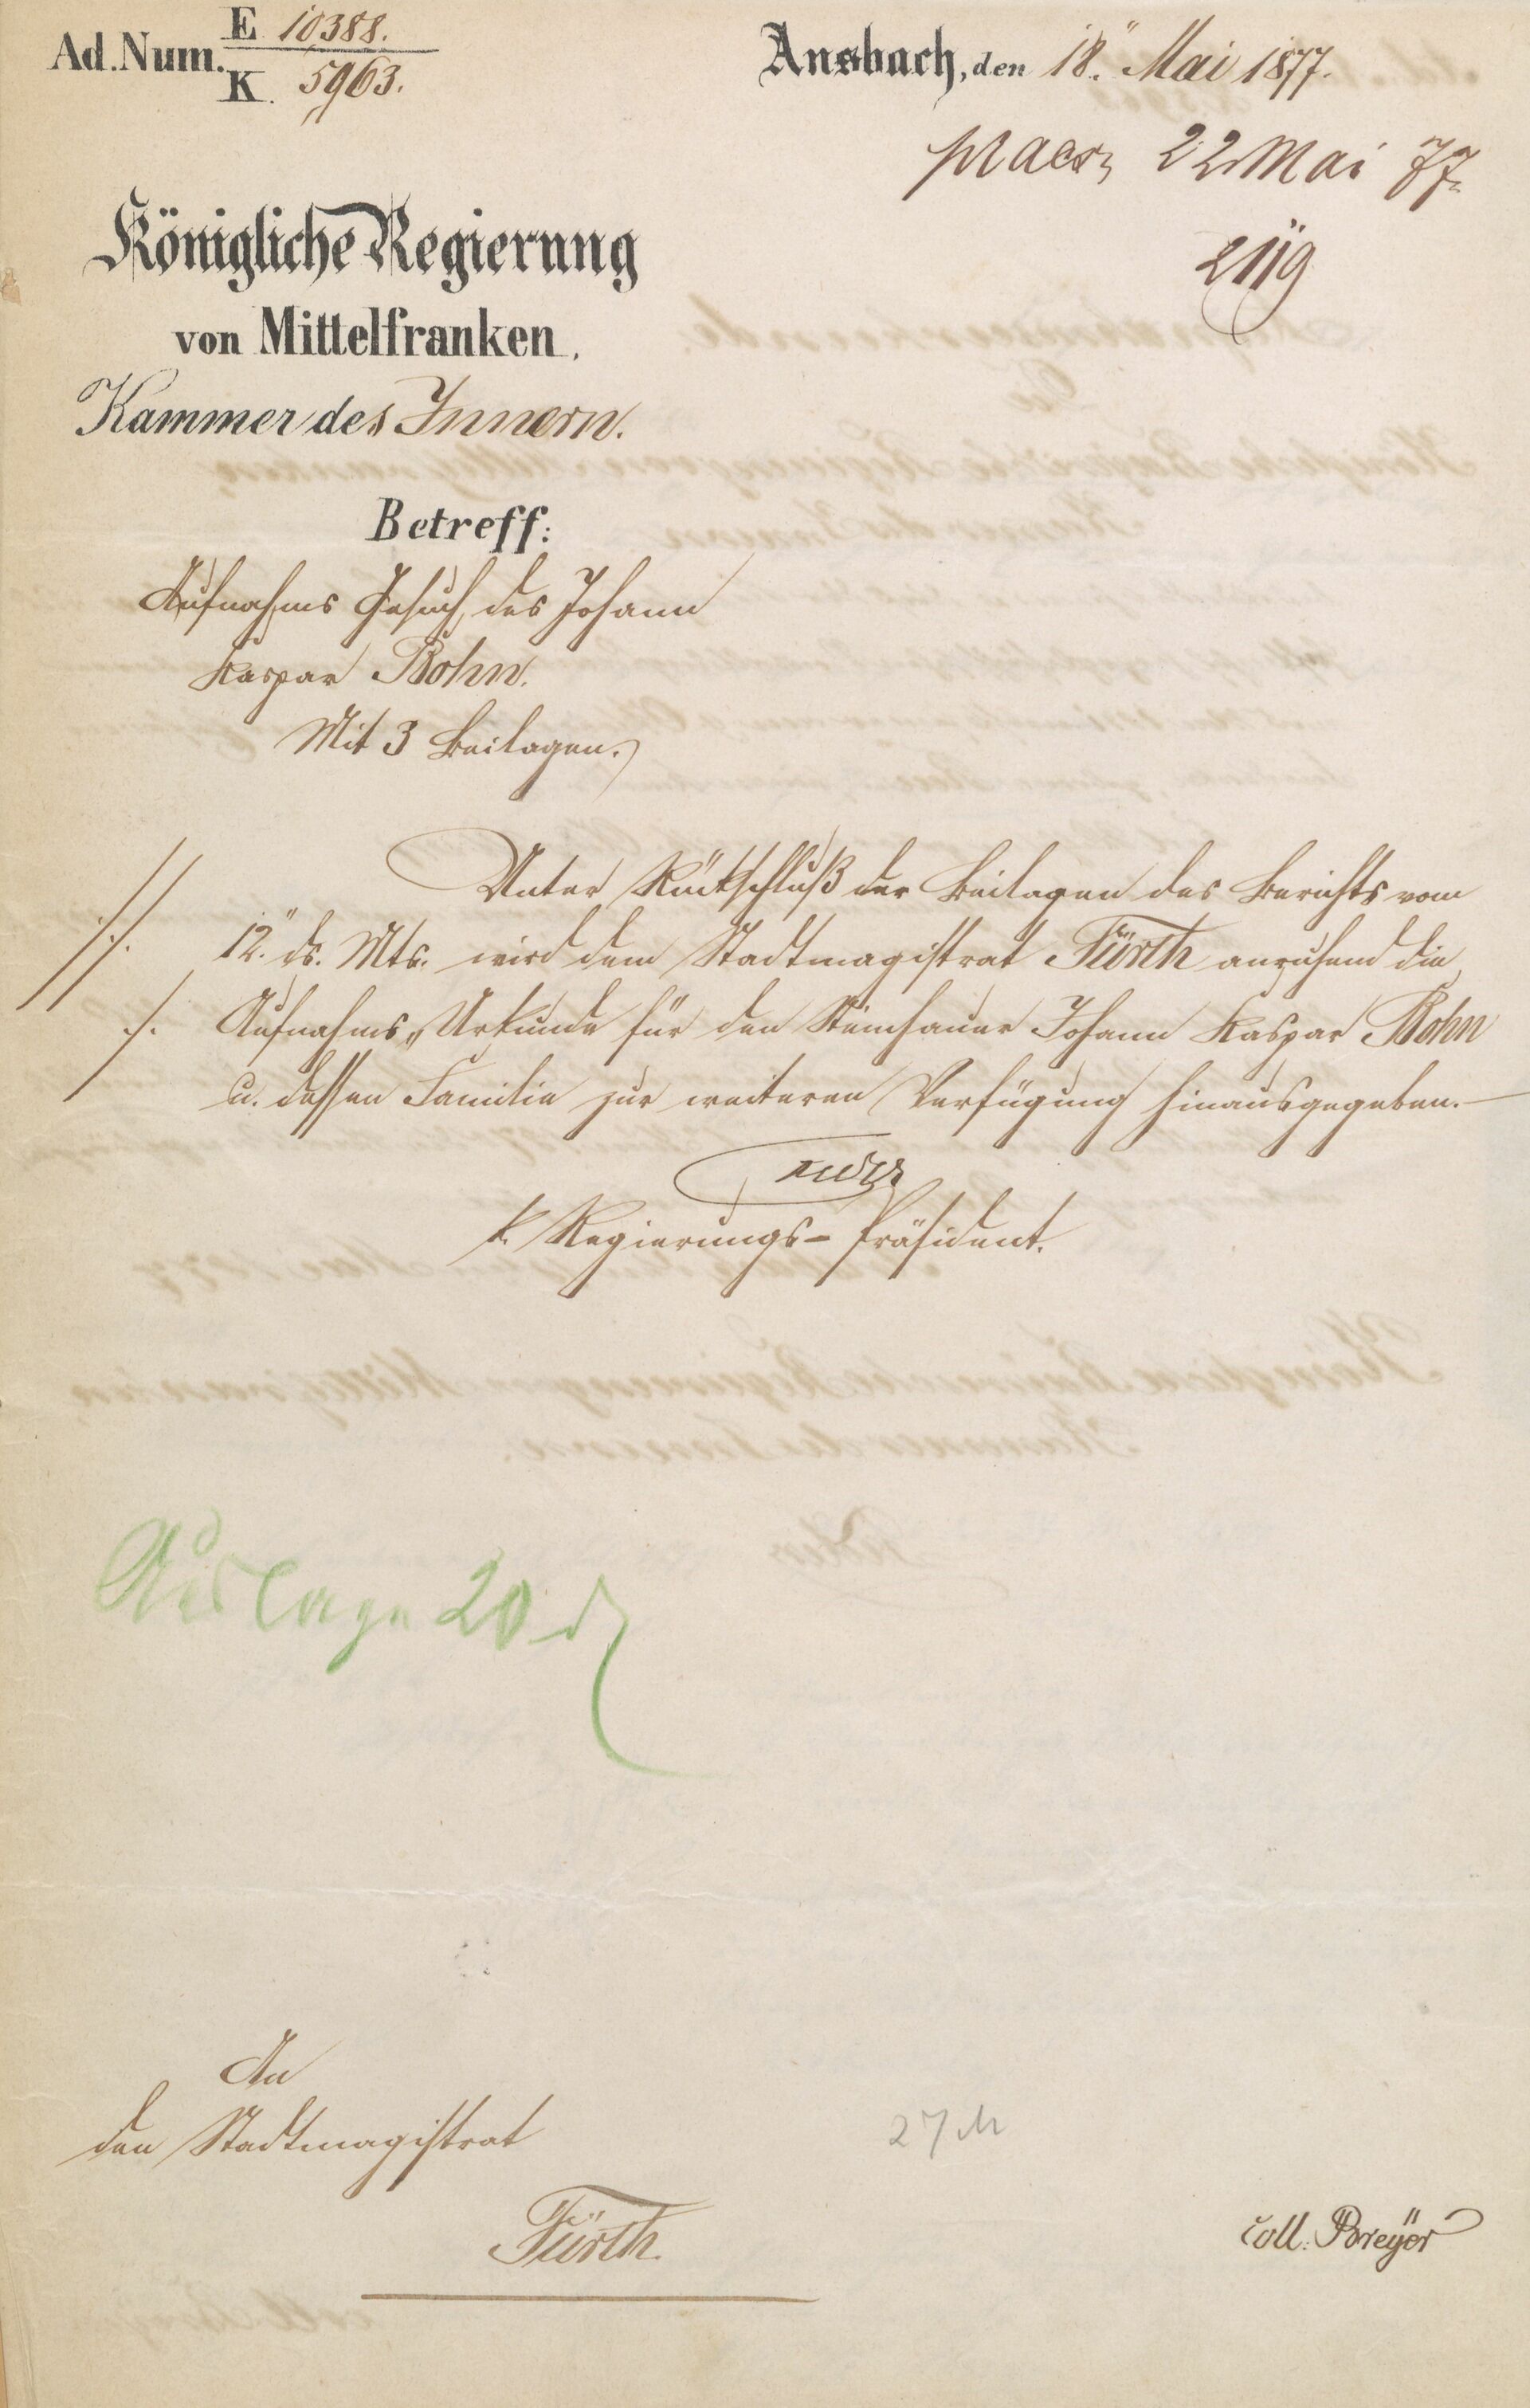 Ad. Num. E 10388.
K. 5963.
Ansbach, den 18. Mai 1877.
praes. 22 Mai 77.
2119
Königliche Regierung
von Mittelfranken,
Kammer des Innern.
Betreff:
Aufnahms Gesuch des Johann
Kaspar Bohn.
Mit 3 Beilagen.
Unter Rückschluß der Beilagen des Berichts vom
12. ds. Mts. wird dem Stadtmagistrat Fürth anruhend die
Aufnahms-Urkunde für den Steinhauer Johann Kaspar Bohn
u. dessen Familie zur weiteren Verfügung hinausgegeben.
k. Regierungs-Präsident.
Auslage 20 d
An
den Stadtmagistrat
Fürth.
27 M
Coll. Breyer